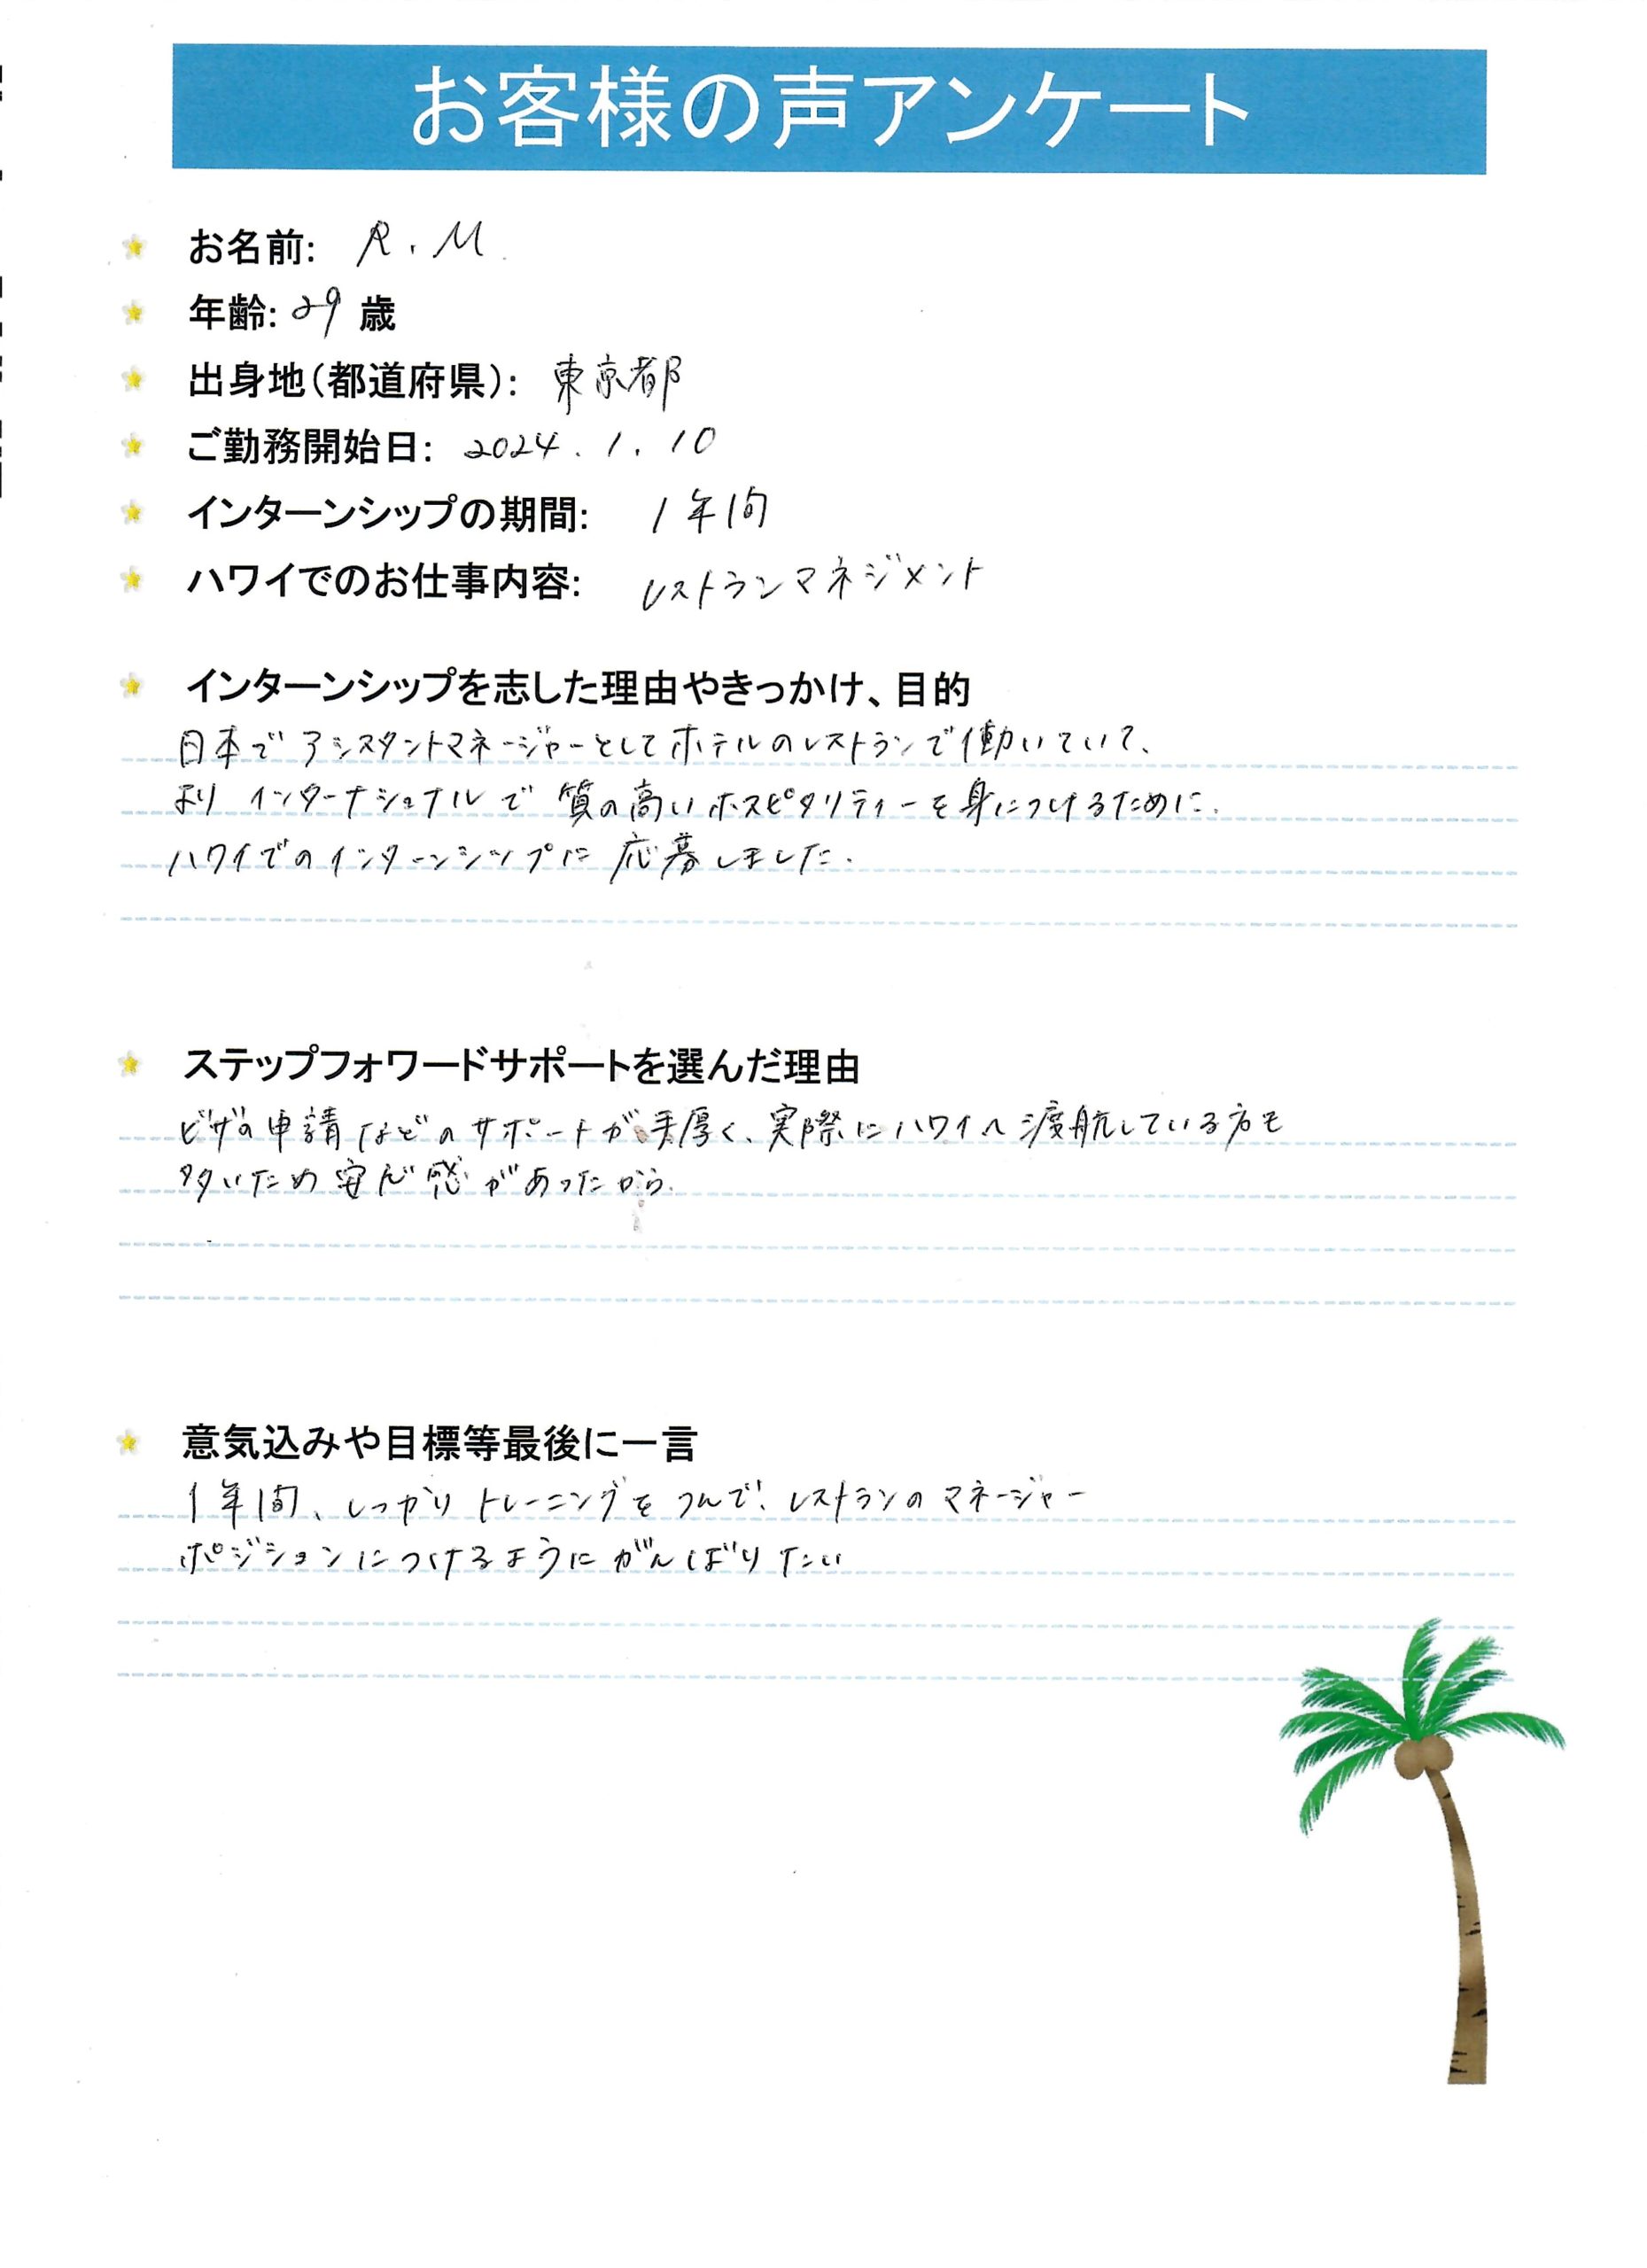 お客様の声アンケート
お名前: R.M
年齢: 29 歳
出身地(都道府県): 東京都
ご勤務開始日: 2024.1.10
インターンシップの期間: 1年間
ハワイでのお仕事内容: レストランマネジメント
インターンシップを志した理由やきっかけ、目的
日本でアシスタントマネージャーとしてホテルのレストランで働いていて、
より インターナショナルで 質の高いホスピタリティーを身につけるために、
ハワイでのインターンシップに 応募しました.
ステップフォワードサポートを選んだ理由
ビザの申請などのサポートが手厚く、実際にハワイへ渡航している方も
多いため安心感があったから.
意気込みや目標等最後に一言
1年間、しっかりトレーニングをつんで、レストランのマネージャー
ポジションにつけるようにがんばりたい